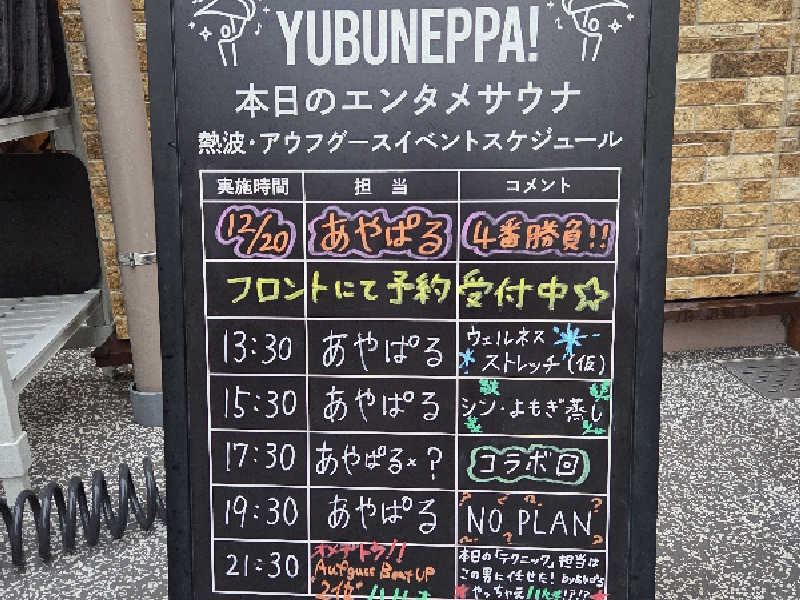 YUBUNEPPA!
本日のエンタメサウナ
熱波・アウフグースイベントスケジュール
実施時間 担当 コメント
12/20 あやぱる 4番勝負!!
フロントにて予約受付中☆
13:30 あやぱる ウェルネスストレッチ(仮)
15:30 あやぱる シン・よもぎ蒸し
17:30 あやぱる×? コラボ回
19:30 あやぱる NO PLAN
21:30 オメデトウ!! 本日の「テクニック」担当は
Aufguss Beat UP この男に任せた!
2位 やっちゃえ